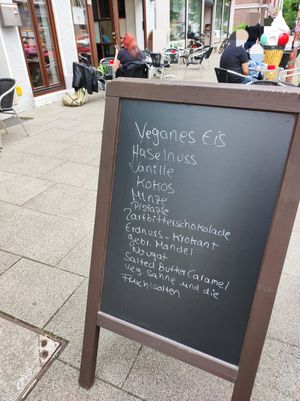 Veganes Eis
Haselnuss
Vanille
Kokos
Minze
Pistazie
Zartbitterschokolade
Erdnuss-Krokant
gebr. Mandel
Nougat
Salted Butter Caramel
veg Sahne und die
Fruchtsorten